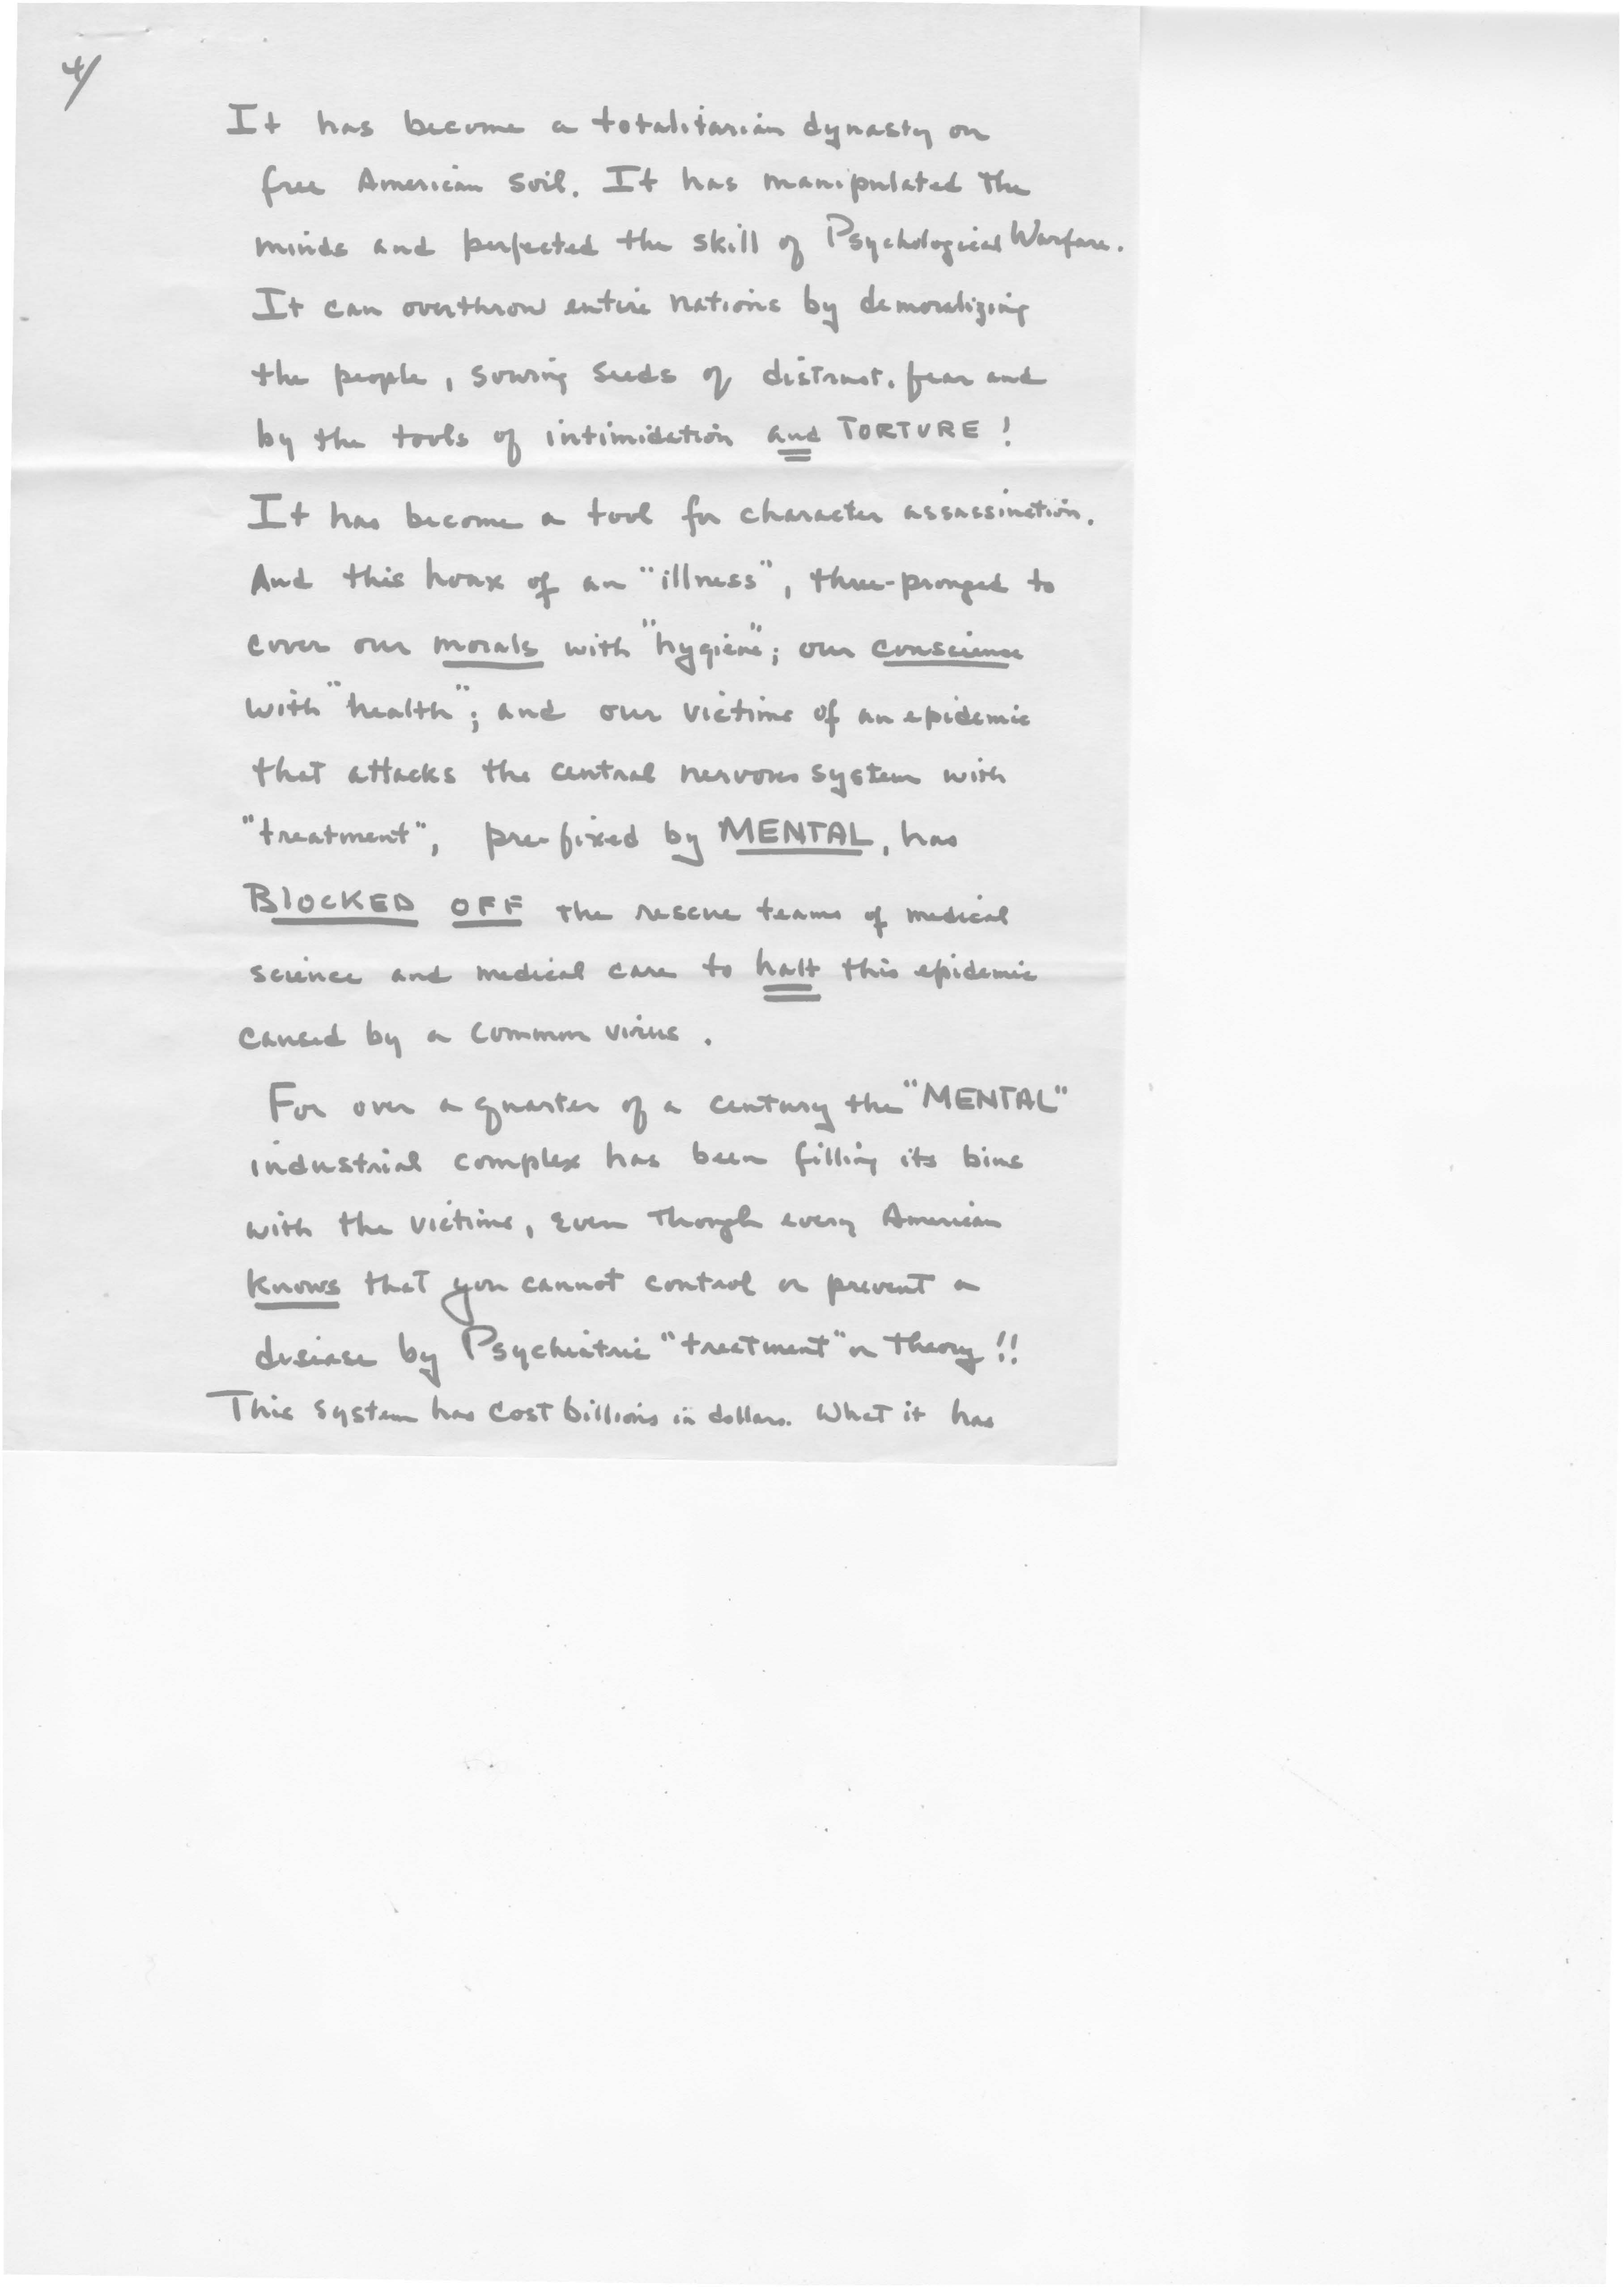 4/
It has become a totalitarian dynasty on
free American soil. It has manipulated the
minds and perfected the skill of Psychological Warfare.
It can overthrow entire nations by demoralizing
the people, sowing seeds of distrust, fear and
by the tools of intimidation and TORTURE!
It has become a tool for character assassination.
And this hoax of an "illness", three-pronged to
cover our morals with "hygiene"; our conscience
with "health"; and our victims of an epidemic
that attacks the central nervous system with
"treatment", pre-fixed by MENTAL, has
BLOCKED OFF the rescue teams of medical
science and medical care to halt this epidemic
caused by a common virus.
For over a quarter of a century the "MENTAL"
industrial complex has been filling its bins
with the victims, even though every American
knows that you cannot control or prevent a
disease by Psychiatric "treatment" or theory!!
This system has cost billions in dollars. What it has